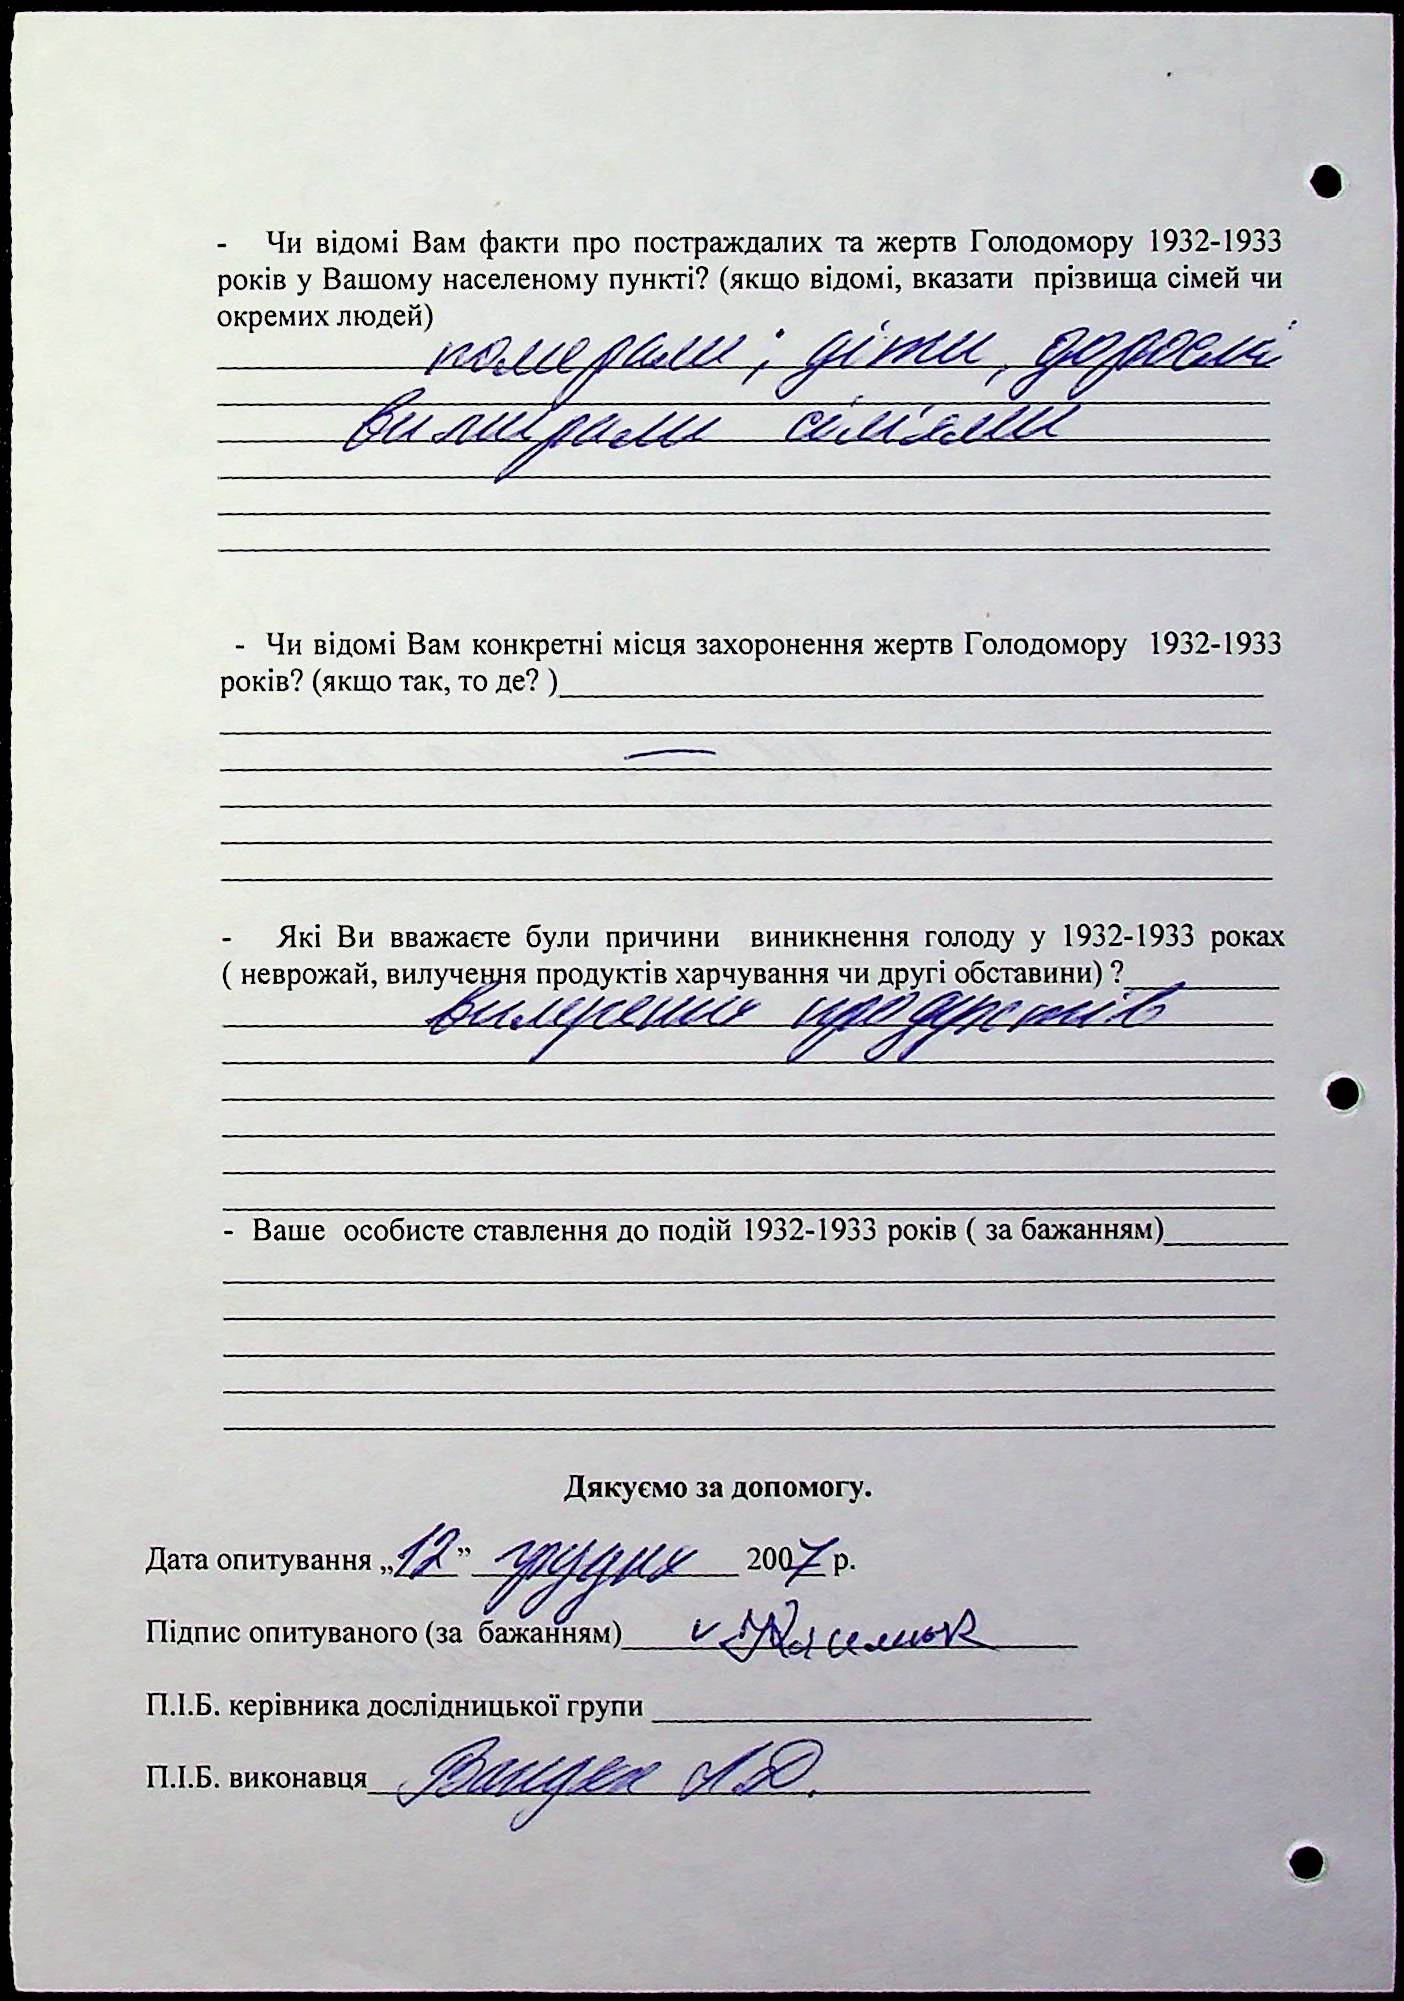 - Чи відомі Вам факти про постраждалих та жертв Голодомору 1932-1933
років у Вашому населеному пункті? (якщо відомі, вказати прізвища сімей чи
окремих людей)
померали; діти, дорослі
вимирали сім'ями
- Чи відомі Вам конкретні місця захоронення жертв Голодомору 1932-1933
років? (якщо так, то де? )
—
- Які Ви вважаєте були причини виникнення голоду у 1932-1933 роках
( неврожай, вилучення продуктів харчування чи другі обставини) ?
вилучення продуктів
- Ваше особисте ставлення до подій 1932-1933 років ( за бажанням)
Дякуємо за допомогу.
Дата опитування „12” грудня 2007 р.
Підпис опитуваного (за бажанням)
П.І.Б. керівника дослідницької групи
П.І.Б. виконавця